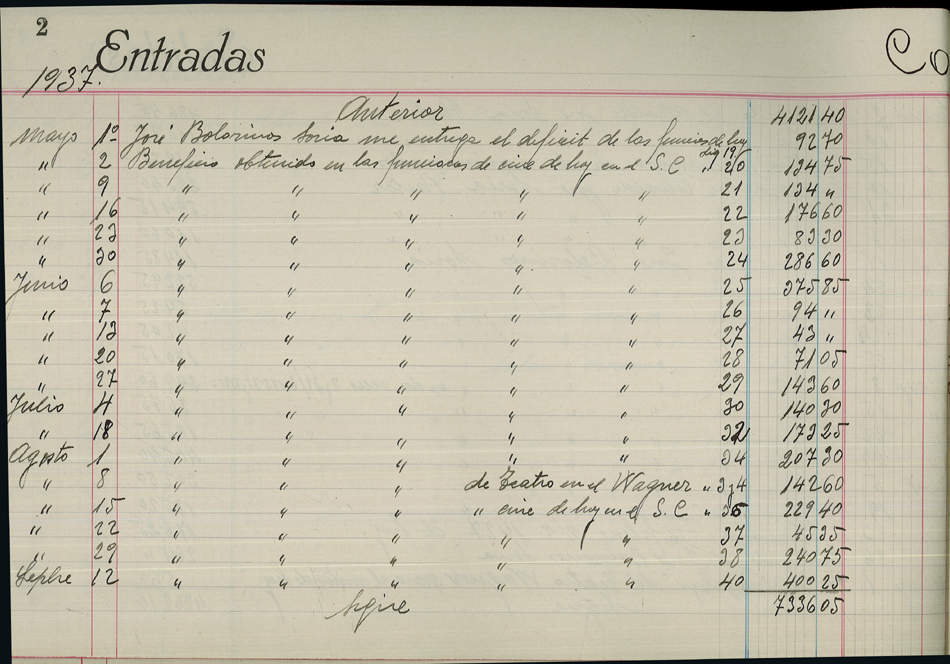 2
Entradas
Co
1937.
Anterior 4121 40
Mayo 1º José Bolarinos Soria me entrega el déficit de las funciones de hoy 92 70
" 2 Beneficio obtenido en las funciones de cine de hoy en el S. C " 20 134 75
" 9 " " " " " 21 134 "
" 16 " " " " " 22 176 60
" 23 " " " " " 23 83 30
" 30 " " " " " 24 286 60
Junio 6 " " " " " 25 375 85
" 7 " " " " " 26 94 "
" 13 " " " " " 27 43 "
" 20 " " " " " 28 71 05
" 27 " " " " " 29 143 60
Julio 4 " " " " " 30 140 30
" 18 " " " " " 32 173 25
Agosto 1 " " " " " 34 207 30
" 8 " " " de Teatro en el Wagner " 142 60
" 15 " " " " cine de hoy en el S. C " 36 229 40
" 22 " " " " " 37 45 35
" 29 " " " " " 38 240 75
Sepbre 12 " " " " " 40 400 25
Sigue 7336 05